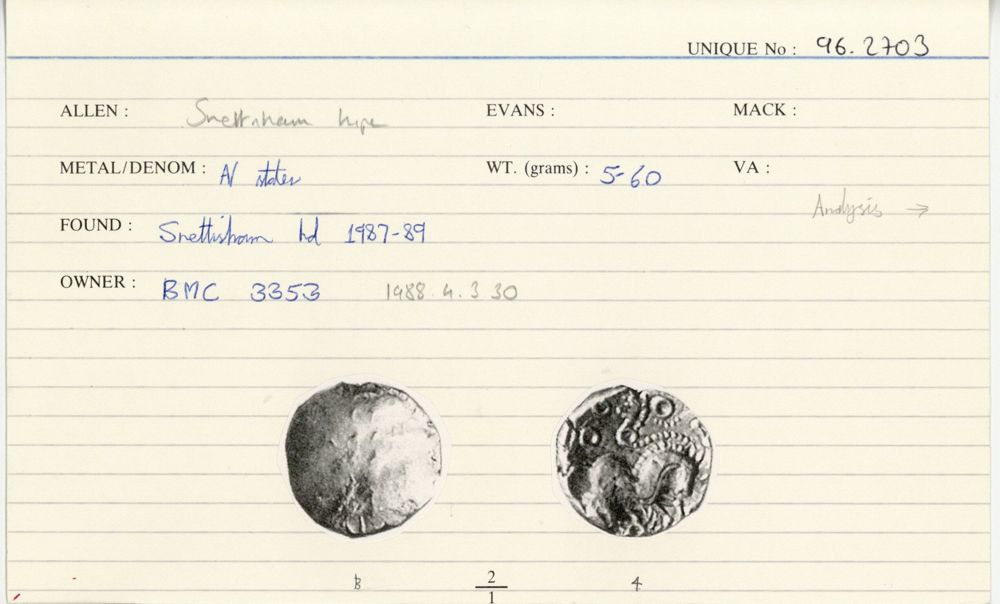 UNIQUE No : 96.2703
ALLEN : Snettisham type EVANS : MACK :
METAL/DENOM : AV stater WT. (grams) : 5-60 VA :
Analysis →
FOUND : Snettisham hd 1987-89
OWNER : BMC 3353 1988.4.3 30
B 2/1 4